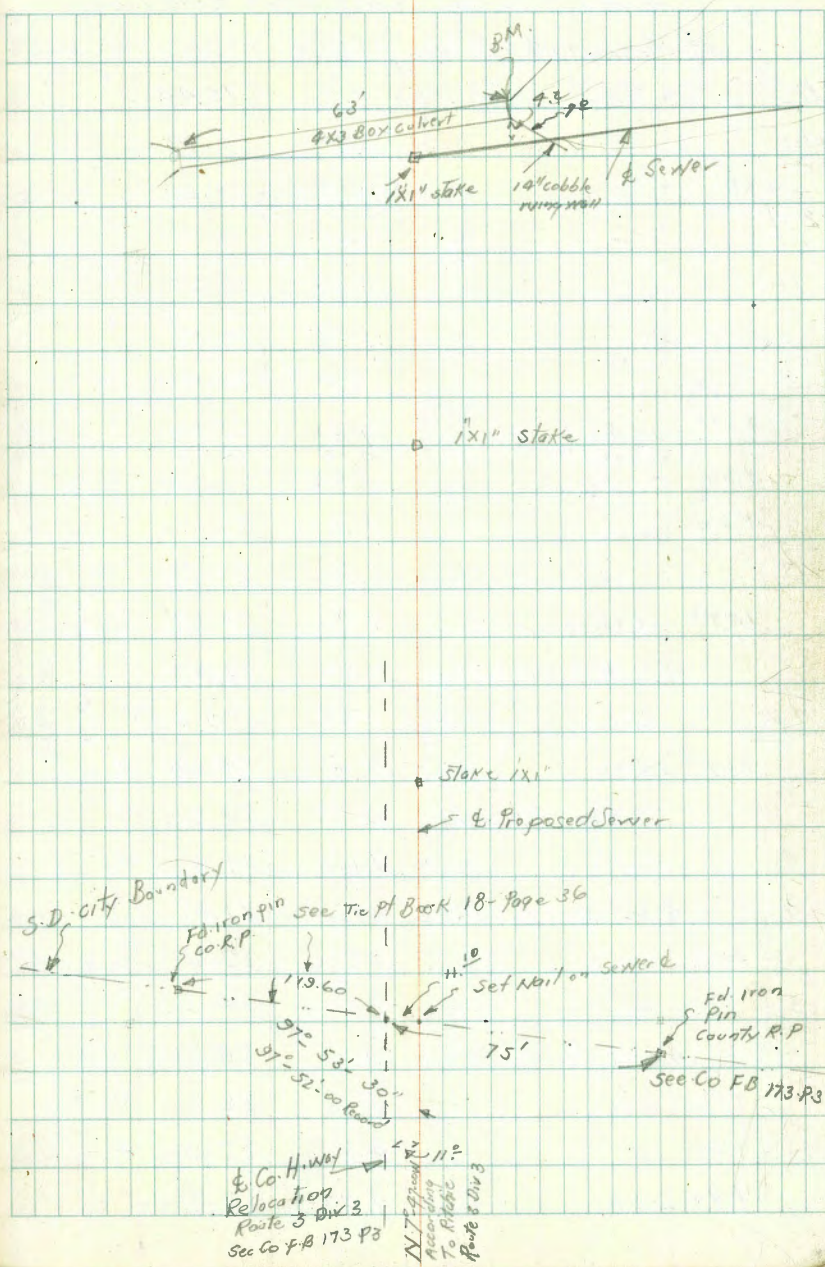 B.M.
63'
4X3 Box culvert
1"X1" stake
14" cobble
℄ Sewer
1"X1" stake
Stake 1X1"
℄ Proposed Sewer
S.D. City Boundary
Fd. Iron pin
Co. R.P.
see Tie Pt Book 18 - Page 36
119.60
11.10
Set Nail on Sewer ℄
Fd. Iron
Pin
County R.P
See Co FB 173 P3
75'
97° 53' 30"
97° 52' 00 Record
11.0
℄ Co. H.way
Relocation
Route 3 Div 3
See Co F.B 173 P3
According
To
Route 3 Div 3